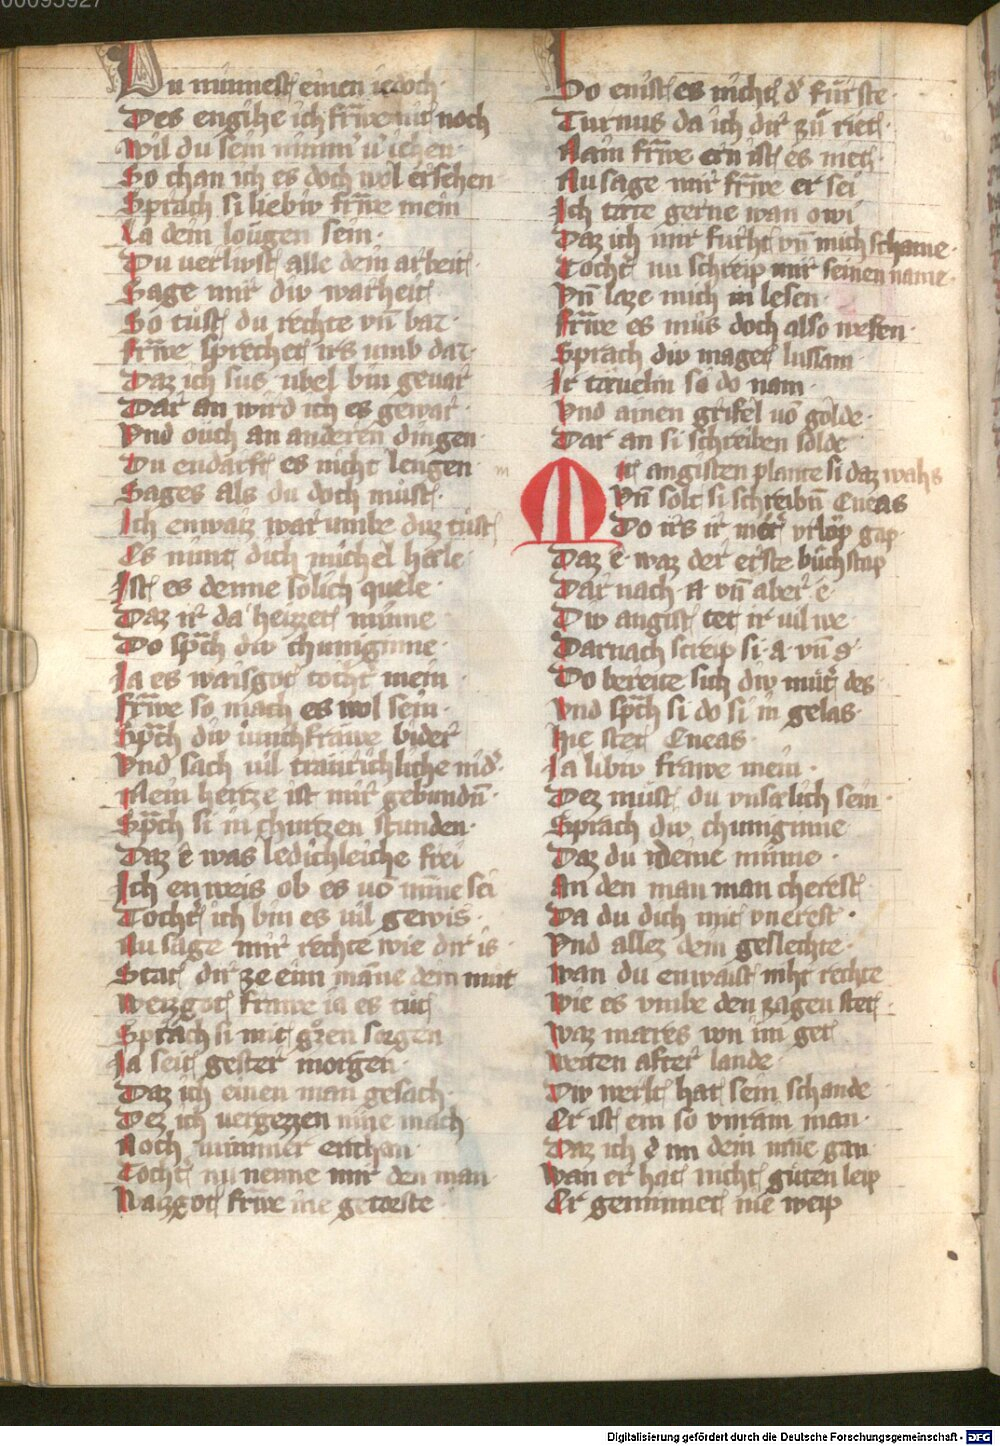 Du minnest einen iedoch·
Des engihe ich frawe nit noch
Wil du sein nimm̾ v̾ichen·
So chan ich es doch wol ersehen
Sprach si liebiv frawe mein
La dein lougen sein·
Du verlivst alle dein arbeit·
Sage mir div warheit
So tust du rechte vn̄ bar·
frawe sprechet irs umb daz
Daz ich sus vbel bin gevar
Dar an wird ich es gewar·
Vnd ouch an anderen dingen
Du endarft es nicht lengen
Sages als du doch must·
Ich enwaiz war umbe duz tust
Es nimt dich michel hæle·
Ist es denne solich quele·
Daz ir da heizzet minne
Do sp̄ch div chuniginne·
Ia es waisgot tocht̾ mein·
frawe so mach es wol sein·
Sp̄ch div iunchfrawe bider
Vnd sach vil traurichliche nid̾·
Mein hertze ist mir gebundn̄·
Sp̄ch si in churtzen stunden·
Daz e was ledichleiche frei
Ich enweis ob es vō minne sei
Tocht̾ ich bin es vil gewis·
Nu sage mir rechte wie dir is·
Stat dir ze eim manne dem mut
Weizgot frawe ia es tut
Sprach si mit grozen sorgen
Ia seit gester morgen·
Daz ich einen man gesach·
Dez ich vergezzen nine mach
Noch nimmer enchan·
Tocht̾ nu nenne mir den man·
Naizgot frwe ine getærste·
Do enist es nicht d̾ furste·
Turnus da ich dir zu riet·
Nain frawe ern ist es niet·
Nu sage mir frawe er sei
Ich tæte gerne wan owi
Daz ich mir furht vn̄ mich schame·
Tocht̾ nu schreip mir seinen name·
Vn̄ laze mich in lesen·
frawe es mus doch also wesen·
Sprach div maget lussam·
Ir tævelin si do nam·
Vnd ainen grifel vō golde·
Dar an si schreiben solde
Mit angisten plante si daz wahs
Vn̄ solt si schreibn̄ Eneas
Do irs ir mut̾ vrlop gap·
Daz e· waz der erste buchstap
Dar nach· n vn̄ aber e·
Div angist tet ir vil we·
Darnach screip si· a· vn̄ s·
Do bereite sich div mut̾ des
Vnd sp̄ch si do si in gelas·
Hie stet Eneas·
Ia libiv frawe mein·
Dez must du vnsælich sein·
Sprach div chuniginne
Daz du deine minne·
An den man man cherest·
Da du dich mit vnerest·
Vnd allez dein geslechte·
Wan du enwaist niht rechte
Wie es vmbe den zagen stet·
Waz mæres von im get
Weiten after lande·
Div werlt hat sein schande
Er ist ein so vnræin man·
Daz ich d̾ im dein minne gan·
Wan er hat nicht guten leip
Er geminnet nie weip
Digitalisierung gefördert durch die Deutsche Forschungsgemeinschaft - DFG